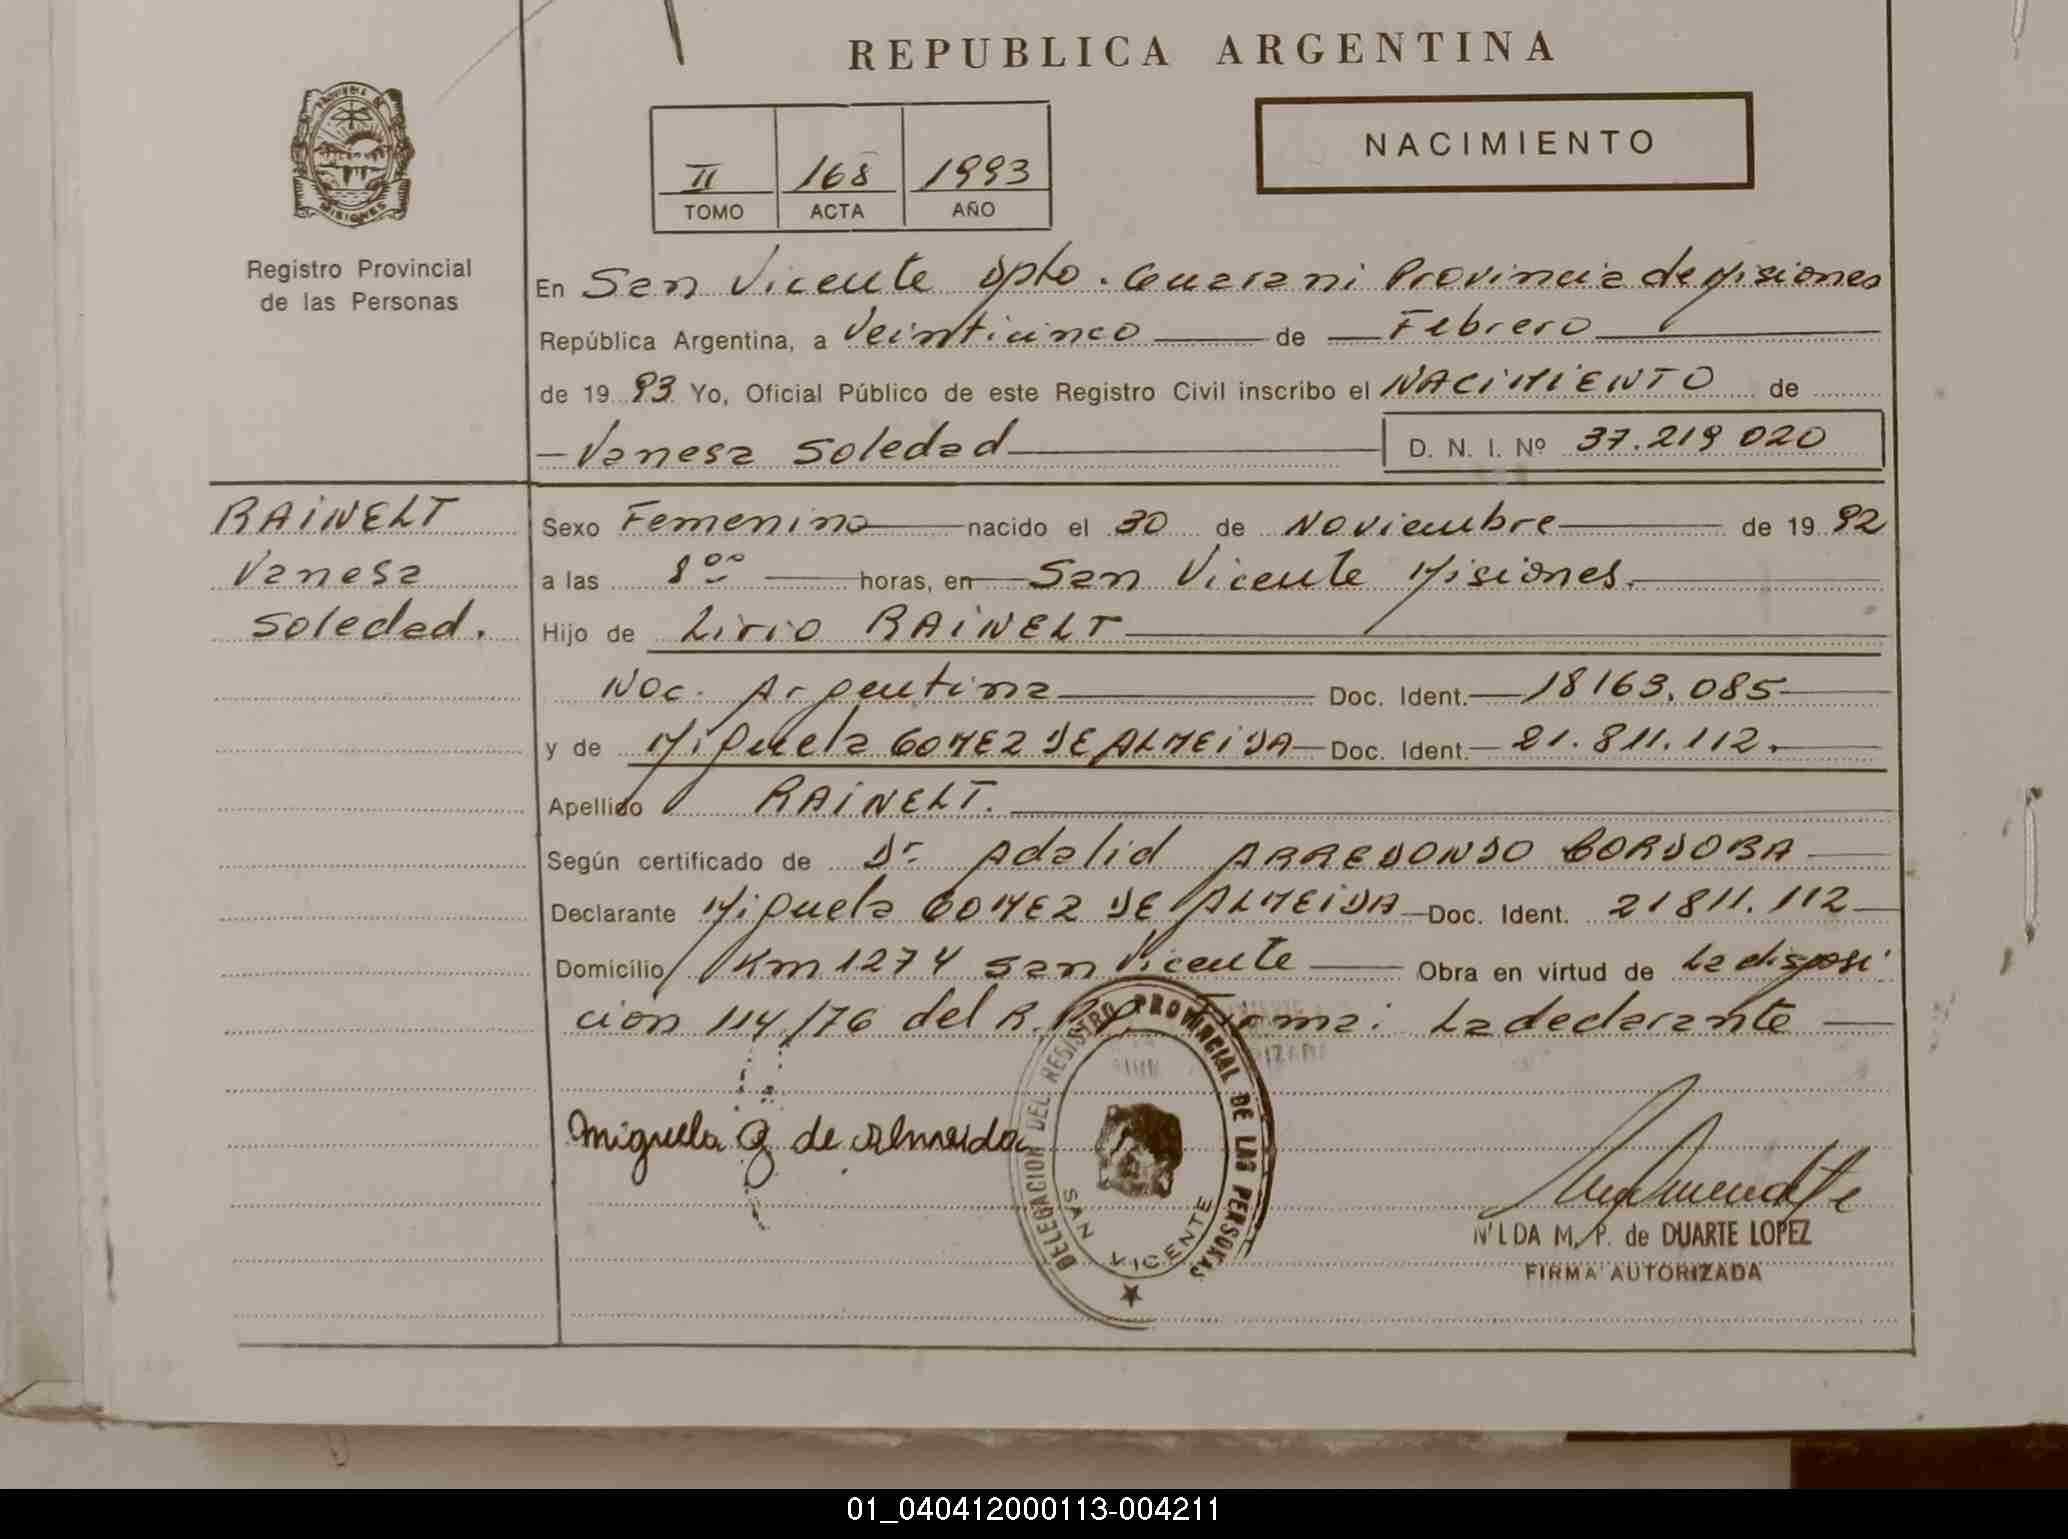 REPUBLICA ARGENTINA
PROVINCIA DE MISIONES
Registro Provincial
de las Personas
II 168 1993
TOMO ACTA AÑO
NACIMIENTO
En San Vicente Dpto. Guarani Provincia de Misiones
República Argentina, a Veinticinco de Febrero
de 19 93 Yo, Oficial Público de este Registro Civil inscribo el NACIMIENTO de
Vanesa Soledad D. N. I. Nº 37.219 020
RAINELT
Vanesa
Soledad.
Sexo Femenino nacido el 30 de Noviembre de 19 92
a las 8 00 horas, en San Vicente Misiones.
Hijo de Lirio RAINELT
Nac. Argentina Doc. Ident. 18163.085
y de Miguela GOMEZ DE ALMEIDA Doc. Ident. 21.811.112.
Apellido RAINELT.
Según certificado de Dr Adalid ARREDONDO CORDOBA
Declarante Miguela GOMEZ DE ALMEIDA Doc. Ident. 21811.112
Domicilio Km 1274 San Vicente Obra en virtud de La disposi
cion 114/76 del R.P.P. Firma: La declarante
Miguela G de Almeida
DELEGACION DEL REGISTRO PROVINCIAL DE LAS PERSONAS
SAN VICENTE
NILDA M. P. de DUARTE LOPEZ
FIRMA AUTORIZADA
01_040412000113-004211